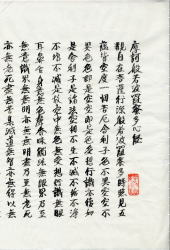 摩訶般若波羅蜜多心經
觀自在菩薩行深般若波羅蜜多時照見五
蘊皆空度一切苦厄舍利子色不異空空不
異色色即是空空即是色受想行識亦復如
是舍利子是諸法空相不生不滅不垢不淨
不增不減是故空中無色無受想行識無眼
耳鼻舌身意無色聲香味觸法無眼界乃至
無意識界無無明亦無無明盡乃至無老死
亦無老死盡無苦集滅道無智亦無得以無